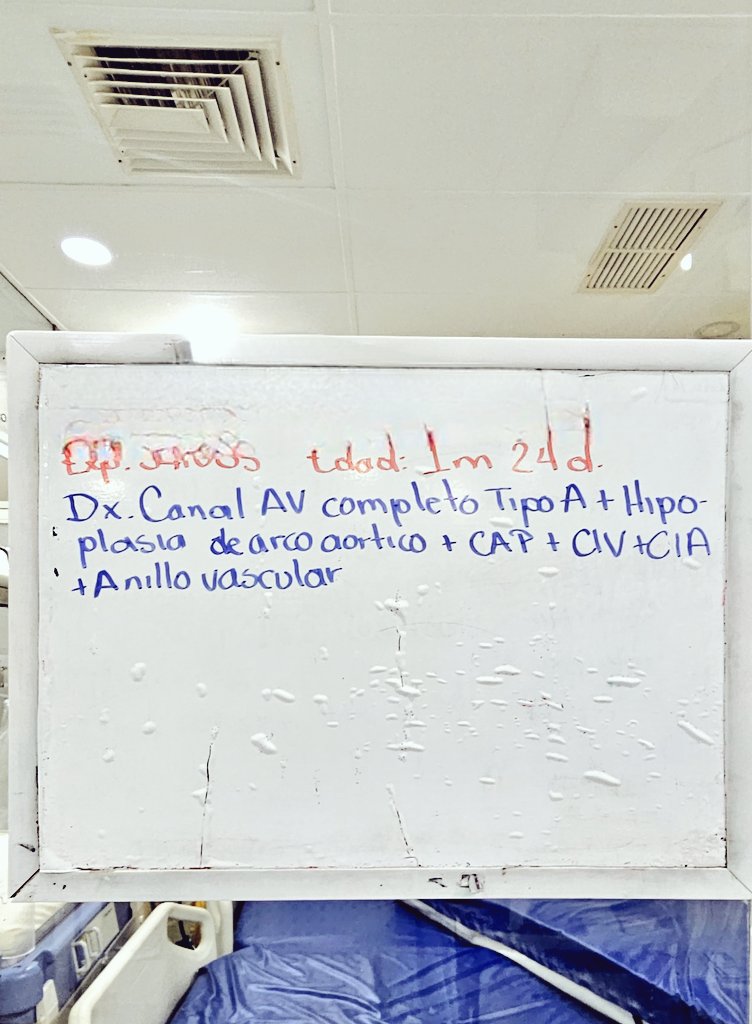 Exp. Edad: 1m 24d.
Dx. Canal AV completo Tipo A + Hipo-
plasia de arco aortico + CAP + CIV + CIA
+ Anillo vascular